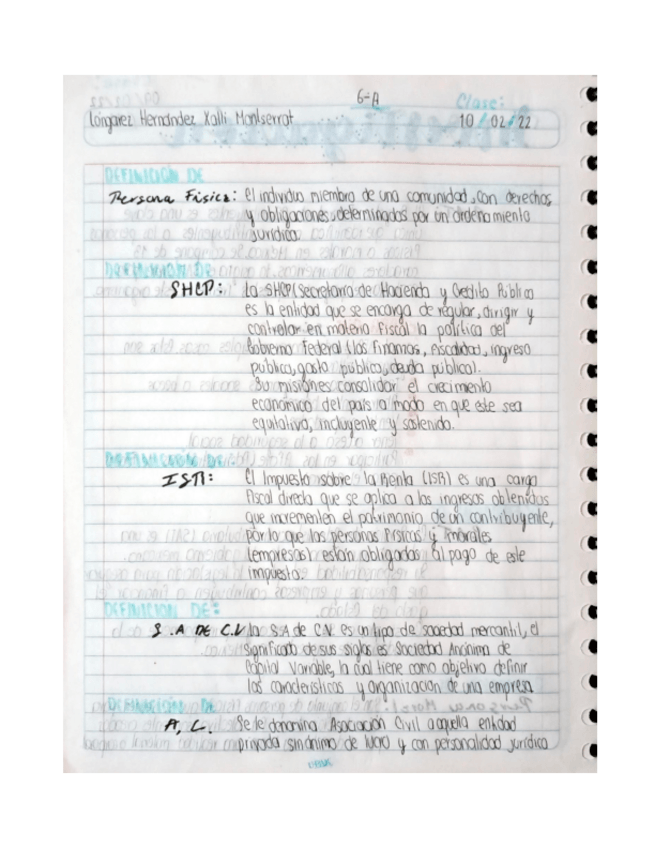 6-A
Clase:
Longarez Hernandez Xalli Montserrat
10/02/22
DEFINICION DE
Persona Fisica: El individuo miembro de una comunidad, con derechos
y obligaciones, determinados por un ordenamiento
jurídico.
DEFINICION DE
SHCP: La SHCP (Secretaria de Hacienda y Credito Publico
es la entidad que se encarga de regular, dirigir y
controlar en materia fiscal la politica del
Gobierno Federal (las finanzas, fiscalidad, ingreso
publico, gasto público, deuda público).
Su misiones consolidar el crecimiento
económico del pais a modo en que este sea
equitativo, incluyente y sostenido.
DEFINICION DE:
ISR: El Impuesto sobre la Renta (ISR) es una carga
fiscal directa que se aplica a los ingresos obtenidos
que incrementen el patrimonio de un contribuyente,
por lo que las personas Fisicas y morales
(empresas) estan obligadas al pago de este
impuesto.
DEFINICION DE:
S.A DE C.V. la S.A de C.V. es un tipo de sociedad mercantil, el
significado de sus siglas es Sociedad Anónima de
Capital Variable, la cual tiene como objetivo definir
las caracteristicas y organización de una empresa
DEFINICION DE
A, C. Se le denomina Asociación Civil a aquella entidad
privada sin ánimo de lucro y con personalidad jurídica